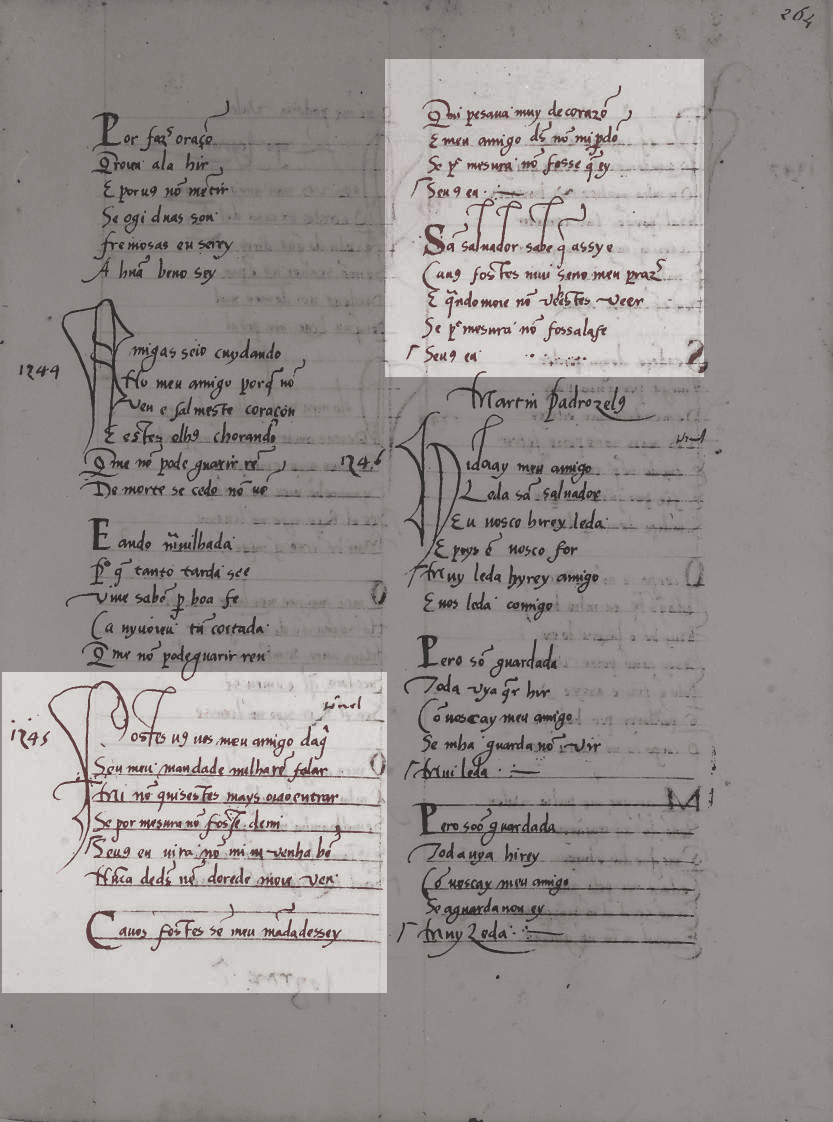 264
Por faz̃ oraçõ
Qurouer ala hir
E por uꝯ nõ metir
Se ogi duas son
fremosas eu serey
A hũa beno sey
1244
Amigas seio cuydando
No meu amigo porq̃ nõ
ven e sal meste coraçon
E estes olhꝯ chorando
Que me nõ pode guarir rẽ
De morte se cedo nõ uẽ
E ando
Pero q̃ tanto tarda see
ven
De me sabẽ p boa fe
Ca nũ
Que me nõ pode guarir ren
1245
Fostes uꝯ uos meu amigo daq̃
Sen meu mandade nulharẽ falar
Mui nõ quisestes mays oiao entrar
Se por mesura nõ fosse demi
Seuꝯ eu uira nõ mi uenha bẽ
Nũca dedꝭ nẽ donde moir uen
Ca uos fostes sẽ meu mãdadessey
Q mi pesaua muy de corazõ
E meu amigo dꝭ nõ mi pdõ
Se pr mesura nõ fosse q̃ ey
Seuꝯ eu
Sã saluador sabe q̃ assy e
Ca uꝯ fostes mui seno meu praz̃
E q̃ndo moir nõ ueestes ueer
Se pr mesura nõ fossalafe
Seuꝯ eu
Martin padrozelꝯ
1246
Hidoay meu amigo
Leda sã saluador
Eu uosco hirey leda
E poys ẽ uosco for
Muy leda hyrey amigo
E uos leda comigo
Pero sõ guardada
Toda uya q̃r hir
Cõ uoscay meu amigo
Se mha guarda nõ uir
Mui leda
Pero soõ guardada
Toda uya hirey
Cõ uoscay meu amigo
Se aguarda non ey
Muy Leda